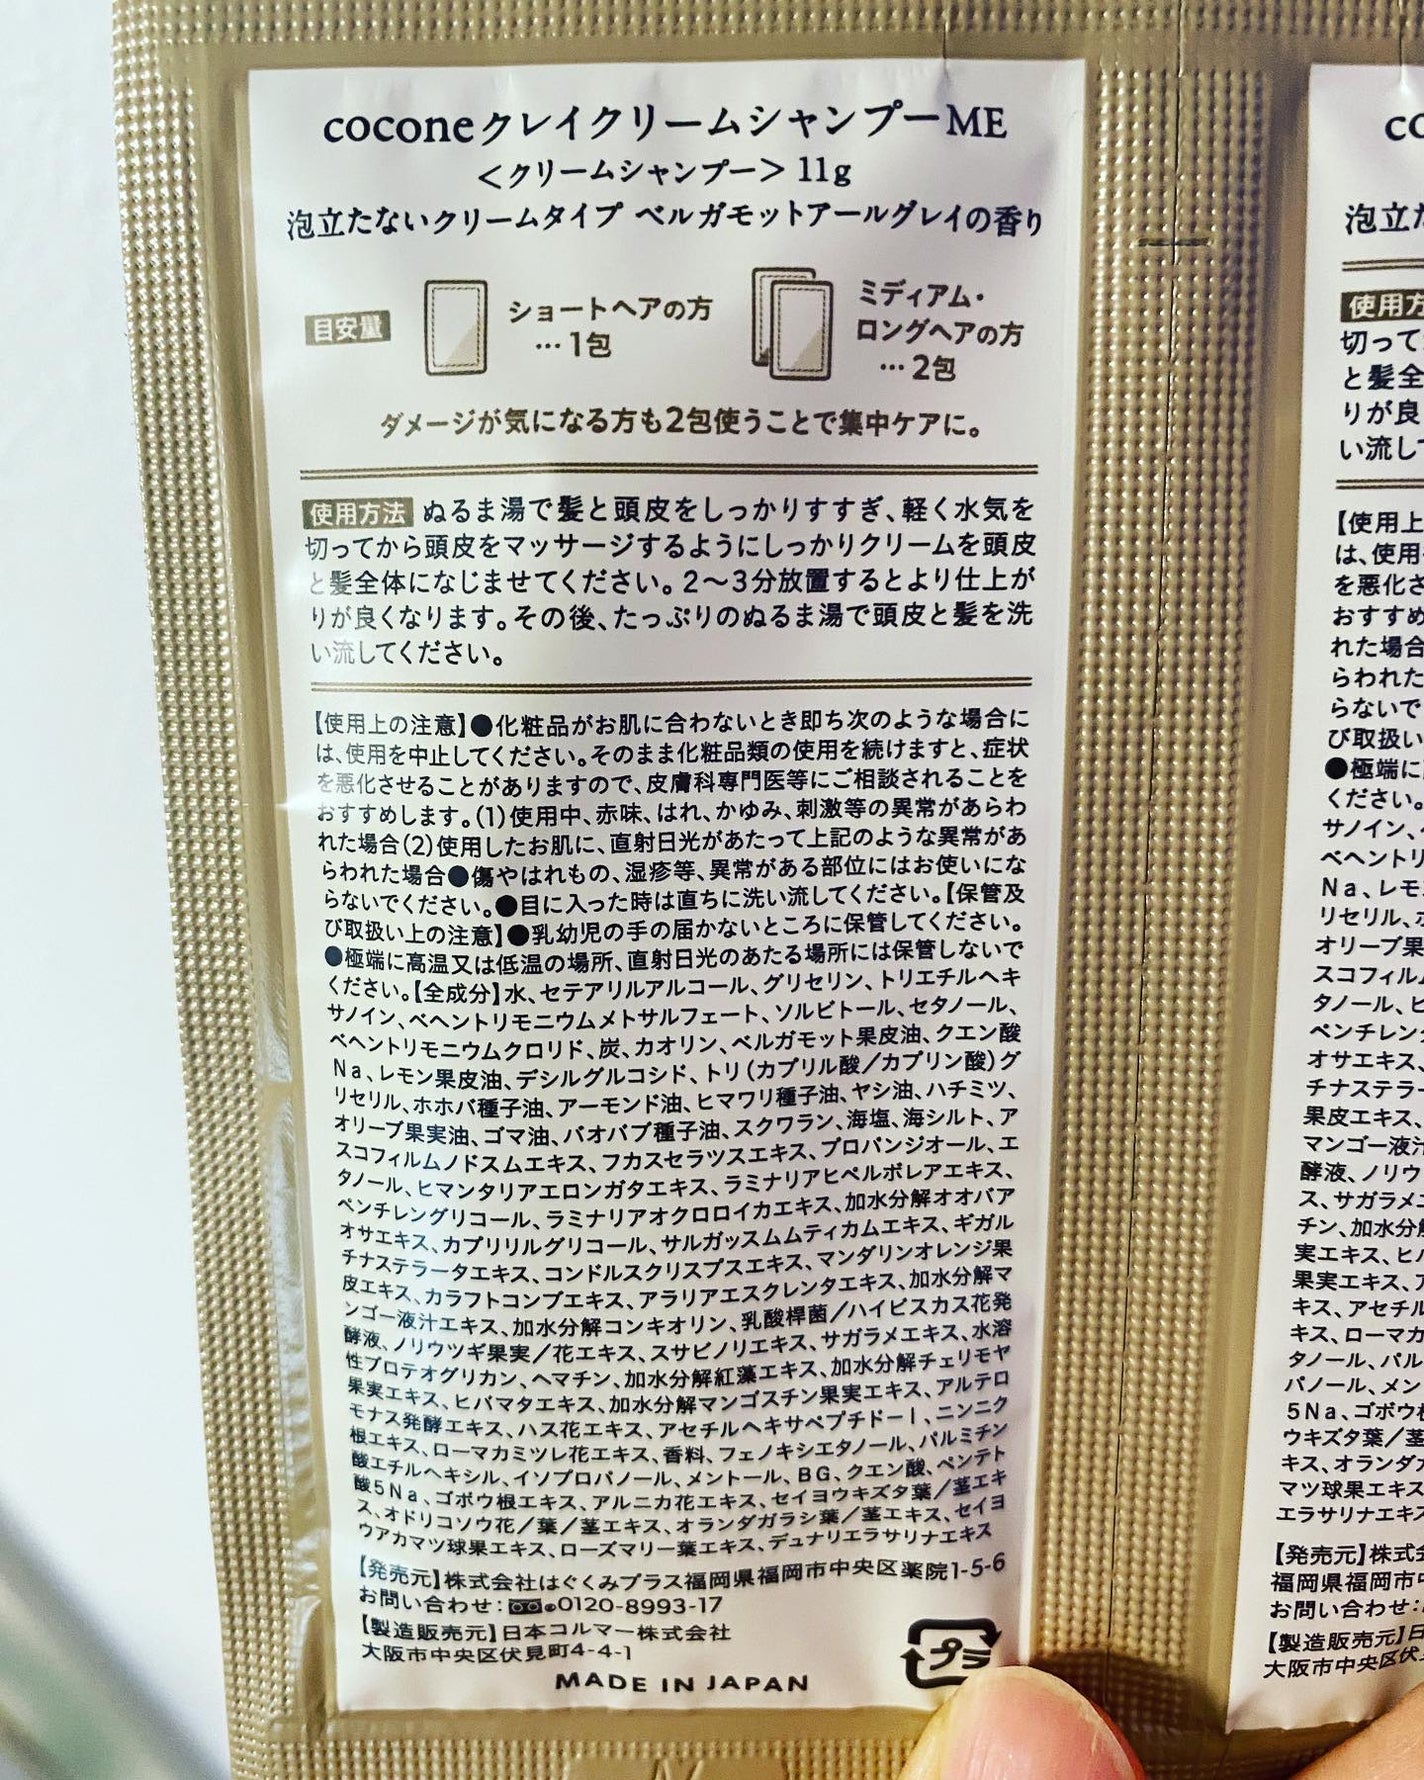 coconeクレイクリームシャンプーME
＜クリームシャンプー＞ 11g
泡立たないクリームタイプ ベルガモットアールグレイの香り
目安量
ショートヘアの方
…1包
ミディアム・
ロングヘアの方
…2包
ダメージが気になる方も2包使うことで集中ケアに。
使用方法 ぬるま湯で髪と頭皮をしっかりすすぎ、軽く水気を
切ってから頭皮をマッサージするようにしっかりクリームを頭皮
と髪全体になじませてください。2〜3分放置するとより仕上が
りが良くなります。その後、たっぷりのぬるま湯で頭皮と髪を洗
い流してください。
【使用上の注意】●化粧品がお肌に合わないとき即ち次のような場合に
は、使用を中止してください。そのまま化粧品類の使用を続けますと、症状
を悪化させることがありますので、皮膚科専門医等にご相談されることを
おすすめします。(1)使用中、赤味、はれ、かゆみ、刺激等の異常があらわ
れた場合(2)使用したお肌に、直射日光があたって上記のような異常があ
らわれた場合●傷やはれもの、湿疹等、異常がある部位にはお使いにな
らないでください。●目に入った時は直ちに洗い流してください。【保管及
び取扱い上の注意】●乳幼児の手の届かないところに保管してください。
●極端に高温又は低温の場所、直射日光のあたる場所には保管しないで
ください。【全成分】水、セテアリルアルコール、グリセリン、トリエチルヘキ
サノイン、ベヘントリモニウムメトサルフェート、ソルビトール、セタノール、
ベヘントリモニウムクロリド、炭、カオリン、ベルガモット果皮油、クエン酸
Na、レモン果皮油、デシルグルコシド、トリ(カプリル酸／カプリン酸)グ
リセリル、ホホバ種子油、アーモンド油、ヒマワリ種子油、ヤシ油、ハチミツ、
オリーブ果実油、ゴマ油、バオバブ種子油、スクワラン、海塩、海シルト、ア
スコフィルムノドスムエキス、フカスセラツスエキス、プロパンジオール、エ
タノール、ヒマンタリアエロンガタエキス、ラミナリアヒペルボレアエキス、
ペンチレングリコール、ラミナリアオクロロイカエキス、加水分解オオバア
オサエキス、カプリリルグリコール、サルガッスムムティカムエキス、ギガル
チナステラータエキス、コンドルスクリスプスエキス、マンダリンオレンジ果
皮エキス、カラフトコンブエキス、アラリアエスクレンタエキス、加水分解マ
ンゴー液汁エキス、加水分解コンキオリン、乳酸桿菌／ハイビスカス花発
酵液、ノリウツギ果実／花エキス、スサビノリエキス、サガラメエキス、水溶
性プロテオグリカン、ヘマチン、加水分解紅藻エキス、加水分解チェリモヤ
果実エキス、ヒバマタエキス、加水分解マンゴスチン果実エキス、アルテロ
モナス発酵エキス、ハス花エキス、アセチルヘキサペプチドー1、ニンニク
根エキス、ローマカミツレ花エキス、香料、フェノキシエタノール、パルミチン
酸エチルヘキシル、イソプロパノール、メントール、BG、クエン酸、ペンテト
酸5Na、ゴボウ根エキス、アルニカ花エキス、セイヨウキズタ葉／茎エキ
ス、オドリコソウ花／葉／茎エキス、オランダガラシ葉／茎エキス、セイヨ
ウアカマツ球果エキス、ローズマリー葉エキス、デュナリエラサリナエキス
【発売元】株式会社はぐくみプラス福岡県福岡市中央区薬院1-5-6
お問い合わせ：0120-8993-17
【製造販売元】日本コルマー株式会社
大阪市中央区伏見町4-4-1
MADE IN JAPAN
プラ
co
泡立た
使用方
切って
と髪全
りが良
い流し
【使用上
は、使用
を悪化さ
おすすめ
れた場合
らわれた
らないで
び取扱い
●極端に
ください。
サノイン、
ベヘントリ
Na、レモ
リセリル、ホ
オリーブ果
スコフィルム
タノール、ヒ
ペンチレン
オサエキス、
チナステラー
果皮エキス、
マンゴー液汁
酵液、ノリウ
ス、サガラメエ
チン、加水分解
実エキス、ヒバ
果実エキス、ア
キス、アセチル
キス、ローマカ
タノール、パル
パノール、メン
5Na、ゴボウ根
ウキズタ葉／茎
キス、オランダガ
マツ球果エキス
エラサリナエキ
【発売元】株式会
福岡県福岡市中
お問い合わせ：
【製造販売元】日
大阪市中央区伏